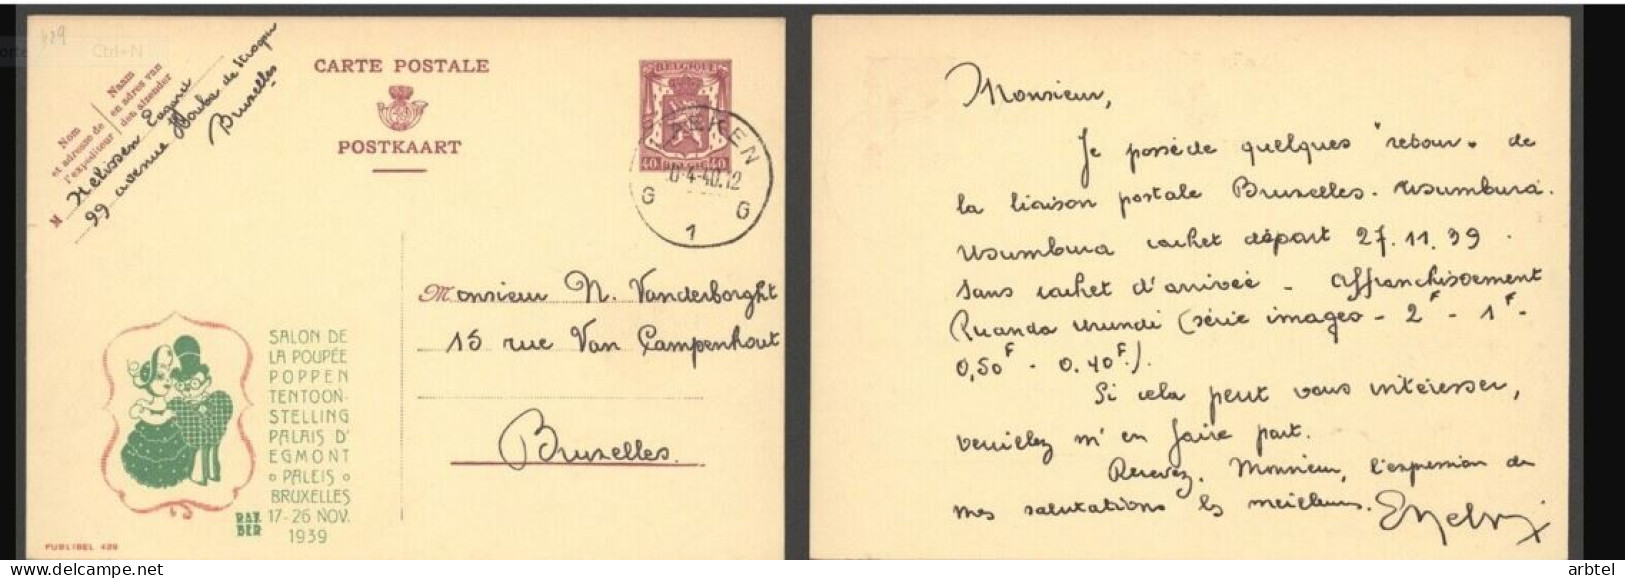 429
Ctrl+N
Nom
et adresse de
l'expéditeur
Naam
en adres van
den afzender
M Nelissen Edgard
99 avenue Houba de Strooper
Bruxelles
CARTE POSTALE
POSTKAART
BELGIQUE
40 BELGIE 40
LAEKEN
0-4-40.12
G G
1
Monsieur N. Vanderborght
15 rue Van Campenhout
Bruxelles.
SALON DE
LA POUPÉE
POPPEN
TENTOON-
STELLING
PALAIS D'
EGMONT
PALEIS
BRUXELLES
17-26 NOV.
1939
PUBLIBEL 429
Monsieur,
Je possède quelques "retour" de
la liaison postale Bruxelles. Usumbura.
Usumbura cachet départ 27.11.39.
Sans cachet d'arrivée - Affranchissement
Ruanda Urundi (série images - 2F - 1F -
0,50F - 0.40F.).
Si cela peut vous intéresser,
veuillez m'en faire part.
Recevez, Monsieur, l'expression de
mes salutations les meilleures.
arbtel
delcampe.net